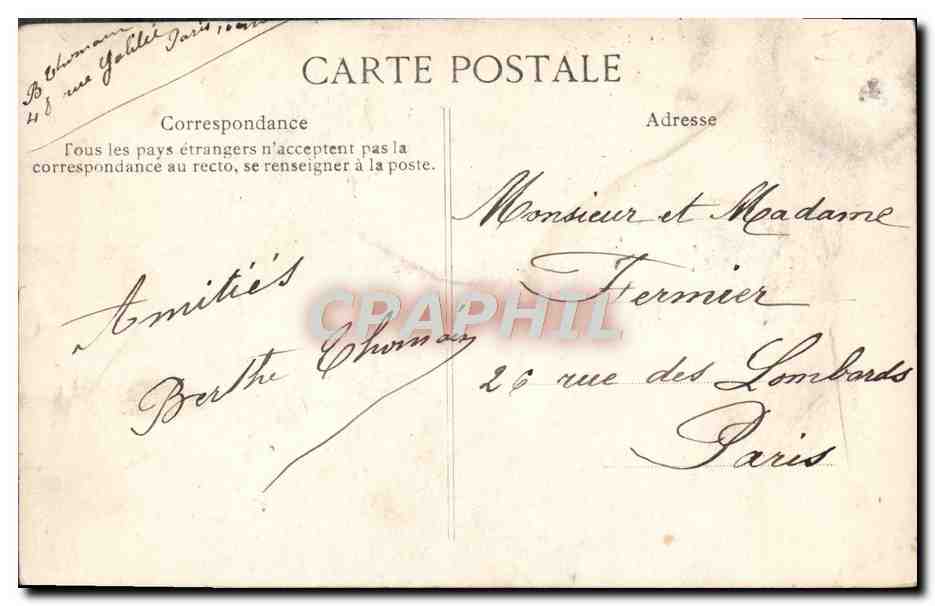 B Thomain
48 rue Galilée Paris
CARTE POSTALE
Correspondance
Tous les pays étrangers n'acceptent pas la
correspondance au recto, se renseigner à la poste.
Amitiés
Berthe Thomain
Adresse
Monsieur et Madame
Fermier
26 rue des Lombards
Paris
CPAPHIL